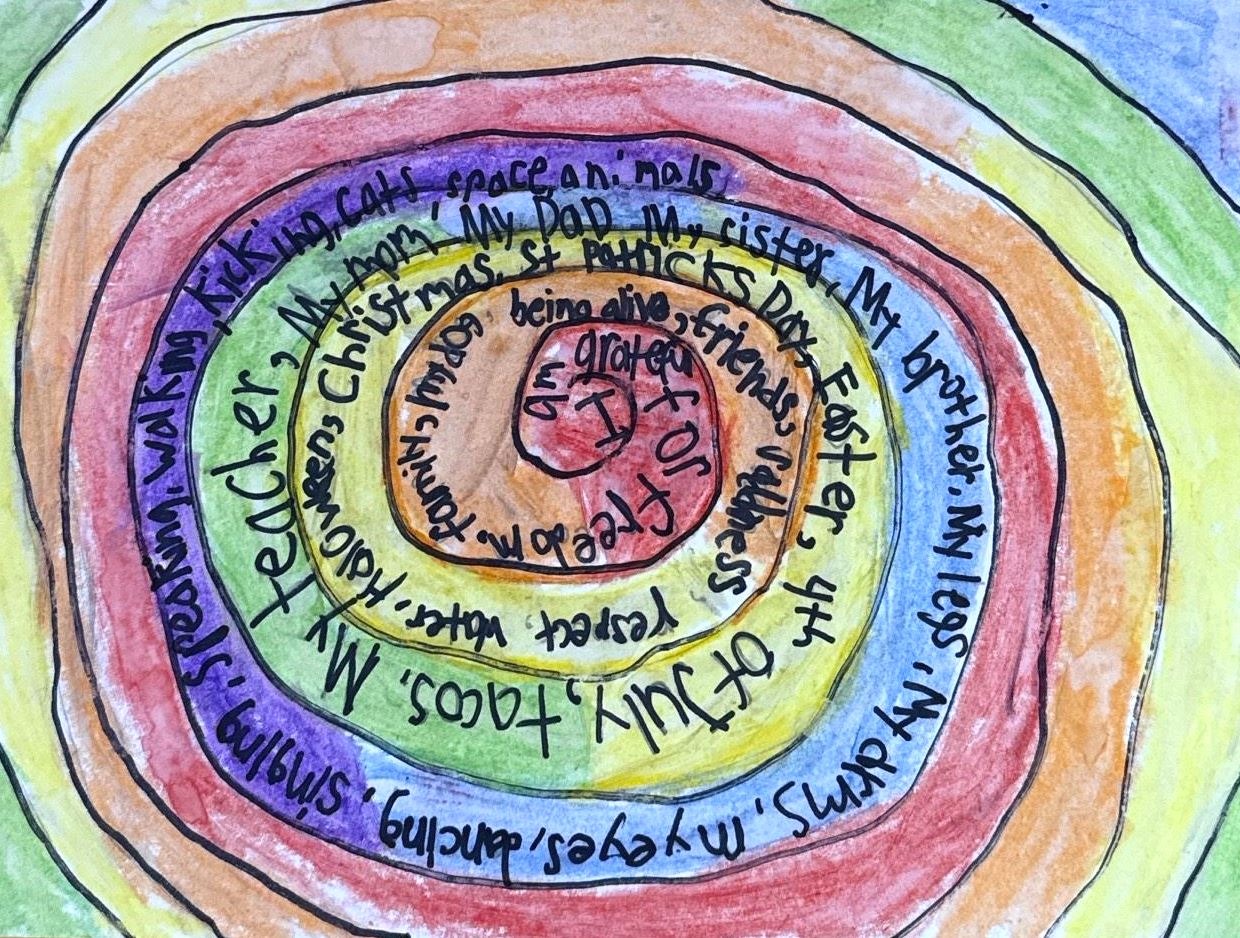 I am grateful for freedom. family, my dog, being alive, friends, respect, water, Halloween, Christmas, St Patricks Day, Easter, 4th of July, tacos. My teacher, My mom, My DaD, My sister, My brother. My legs, My arms, my eyes, dancing, singing, speaking, walking, kicking, cats, space, animals,